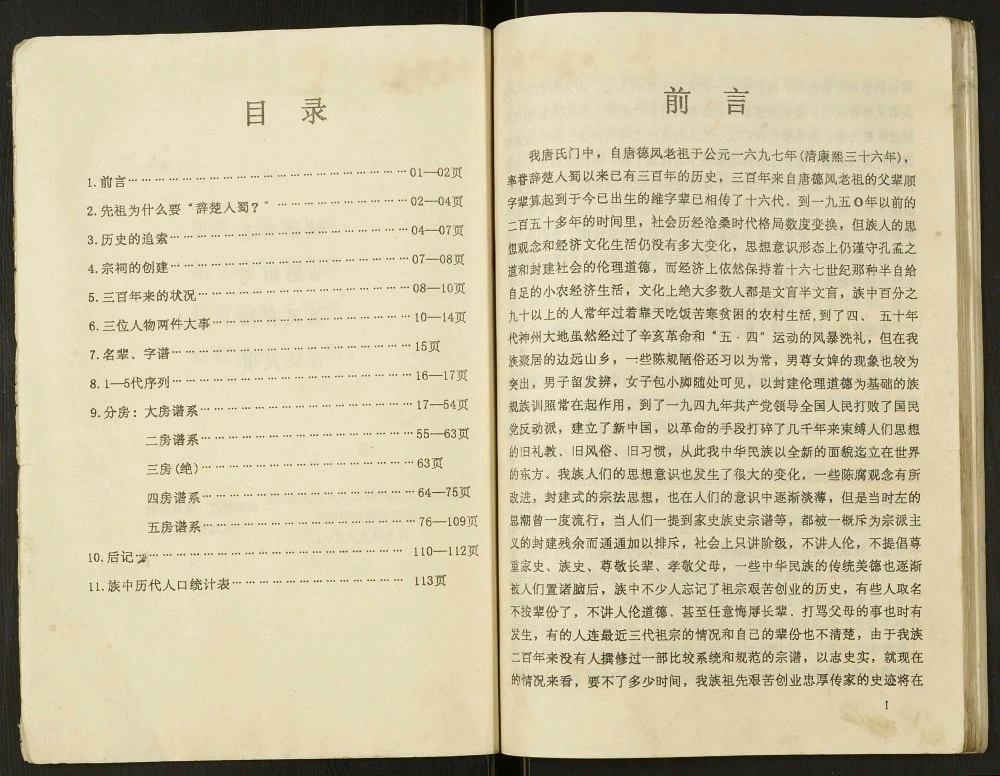 目 录
1.前言………………………………………01—02页
2.先祖为什么要“辞楚人蜀？”……………………02—04页
3.历史的追索………………………………………04—07页
4.宗祠的创建………………………………………07—08页
5.三百年来的状况…………………………………08—10页
6.三位人物两件大事………………………………10—14页
7.名辈、字谱………………………………………15页
8.1—5代序列………………………………………16—17页
9.分房：大房谱系…………………………………17—54页
二房谱系…………………………………55—63页
三房(绝)…………………………………63页
四房谱系…………………………………64—75页
五房谱系…………………………………76—109页
10.后记………………………………………110—112页
11.族中历代人口统计表……………………………113页
前 言
我唐氏门中，自唐德凤老祖于公元一六九七年(清康熙三十六年)，
率眷辞楚人蜀以来已有三百年的历史，三百年来自唐德凤老祖的父辈顺
字辈算起到于今已出生的维字辈已相传了十六代。到一九五０年以前的
二百五十多年的时间里，社会历经沧桑时代格局数度变换，但族人的思
想观念和经济文化生活仍没有多大变化，思想意识形态上仍谨守孔孟之
道和封建社会的伦理道德，而经济上依然保持着十六七世纪那种半自给
自足的小农经济生活，文化上绝大多数人都是文盲半文盲，族中百分之
九十以上的人常年过着靠天吃饭苦寒贫困的农村生活,到了四、五十年
代神州大地虽然经过了辛亥革命和“五·四”运动的风暴洗礼，但在我
族聚居的边远山乡，一些陈规陋俗还习以为常，男尊女婢的现象也较为
突出，男子留发辨，女子包小脚随处可见，以封建伦理道德为基础的族
规族训照常在起作用，到了一九四九年共产党领导全国人民打败了国民
党反动派，建立了新中国，以革命的手段打碎了几千年来束缚人们思想
的旧礼教、旧风俗、旧习惯，从此我中华民族以全新的面貌迄立在世界
的东方。我族人们的思想意识也发生了很大的变化，一些陈腐观念有所
改进，封建式的宗法思想，也在人们的意识中逐渐淡薄，但是当时左的
思潮曾一度流行，当人们一提到家史族史宗谱等，都被一概斥为宗派主
义的封建残余而通通加以排斥，社会上只讲阶级，不讲人伦，不提倡尊
重家史、族史、尊敬长辈、孝敬父母，一些中华民族的传统美德也逐渐
被人们置诸脑后，族中不少人忘记了祖宗艰苦创业的历史，有些人取名
不按辈份了，不讲人伦道德、甚至任意侮辱长辈、打骂父母的事也时有
发生，有的人连最近三代祖宗的情况和自己的辈份也不清楚，由于我族
二百年来没有人撰修过一部比较系统和规范的宗谱，以志史实，就现在
的情况来看，要不了多少时间，我族祖先艰苦创业忠厚传家的史迹将在
I